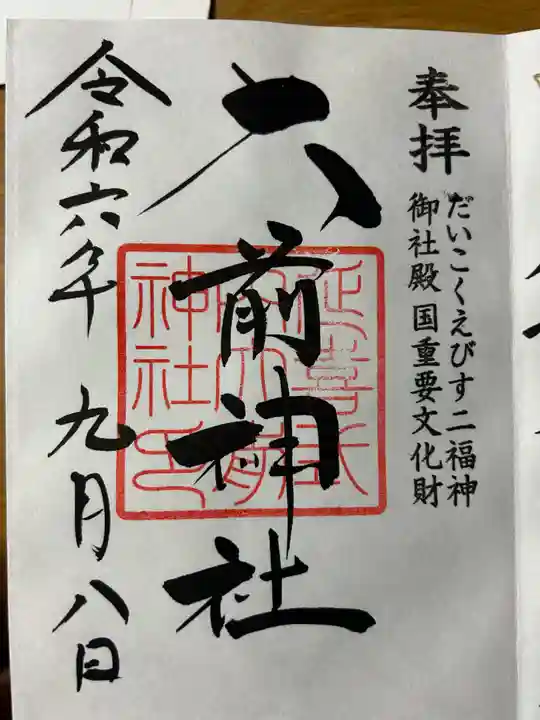 奉拝
だいこくえびす二福神
御社殿 国重要文化財
大前神社
延喜式
内大前
神社印
令和六年 九月八日